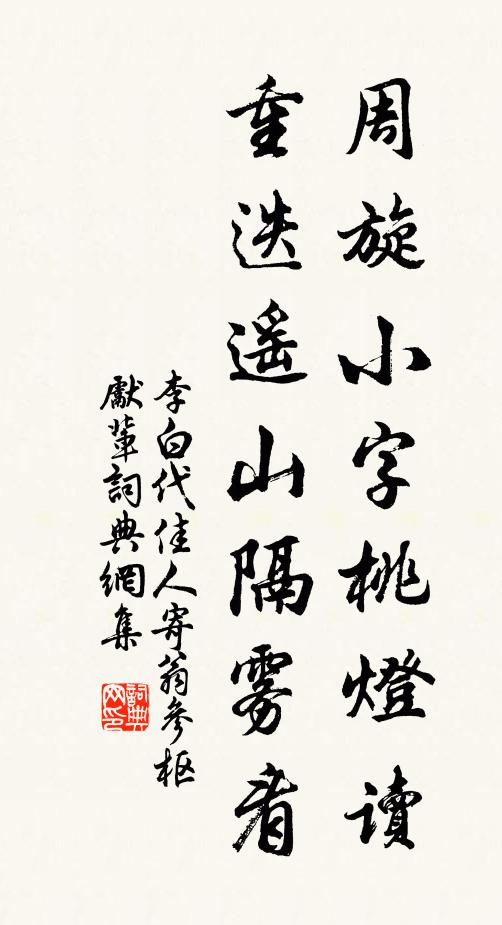 周旋小字桃燈读
重迭遥山隔雾看
李白代佳人寄翁參枢
獻輩詞典網集
詞典网印